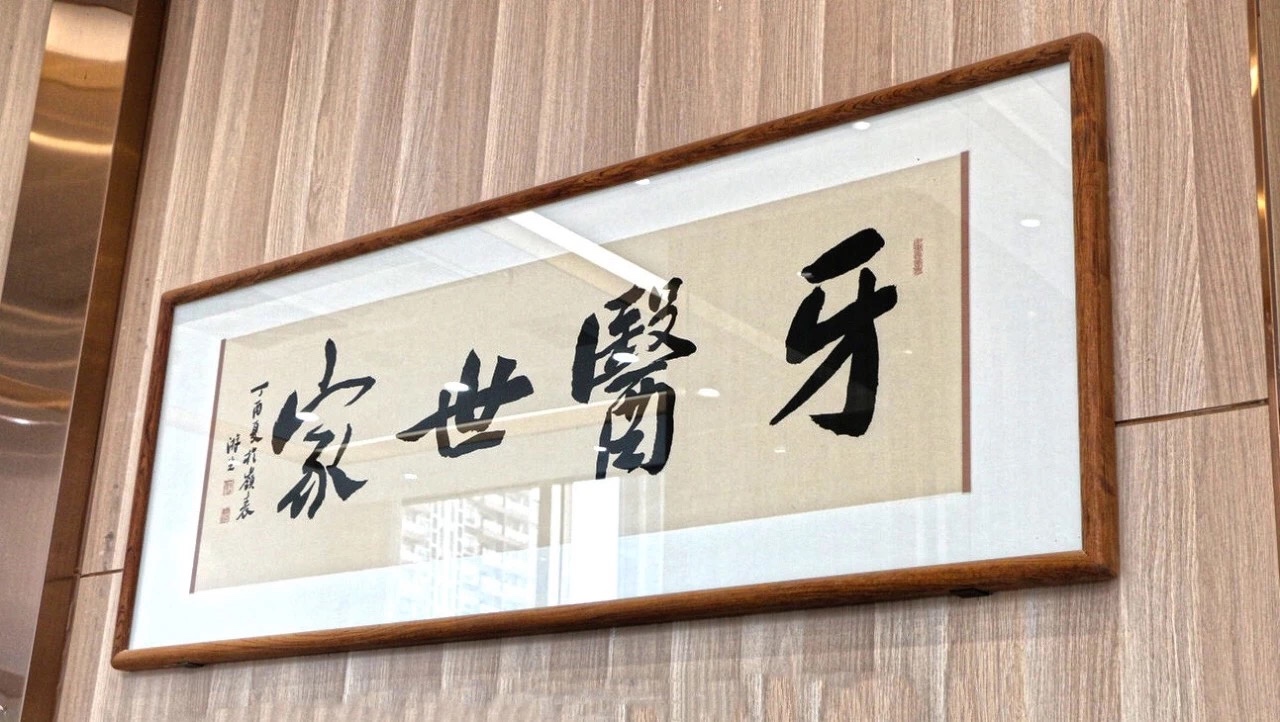 牙醫世家
丁酉夏於嶺表